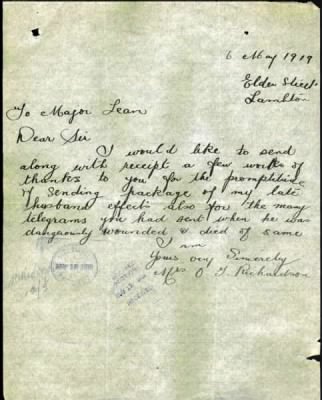 6 May 1919
Elder Street
Lambton
To Major Lean
Dear Sir
I would like to send
along with receipt a few words of
thanks to you for the promptitude
of sending package of my late
husband effects also for the many
telegrams you had sent when he was
dangerously wounded & died of same
I am
Yours very Sincerely
Mrs O J Richardson